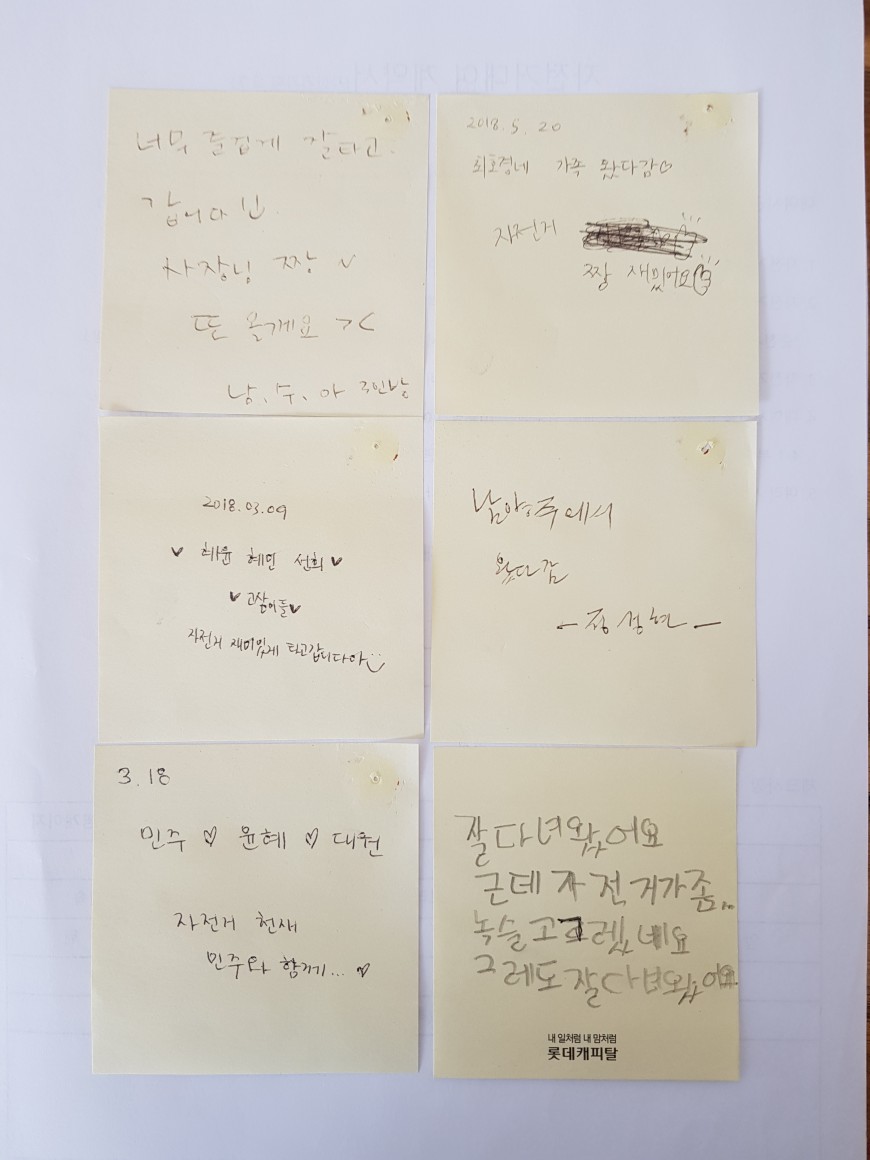 너무 즐겁게 잘타고
갑니다 !!
사장님 짱 ✓
또 올께요 ><
남.수.아
2018. 5. 20
최호경네 가족 왔다감♡
자전거
짱 재밌어요
2018.03.09
♥ 혜윤 혜민 선희 ♥
♥ 고삼이들 ♥
자전거 재미있게 타고갑니다아
남양주에서
왔다감
- 정성현 -
3.18
민주 ♡ 윤혜 ♡ 대원
자전거 천새
민주와 함께... ♡
잘다녀왔어요
근데 자전거가좀..
녹슬고그렜네요
그레도잘다녀왔어요.
내 일처럼 내 맘처럼
롯데캐피탈